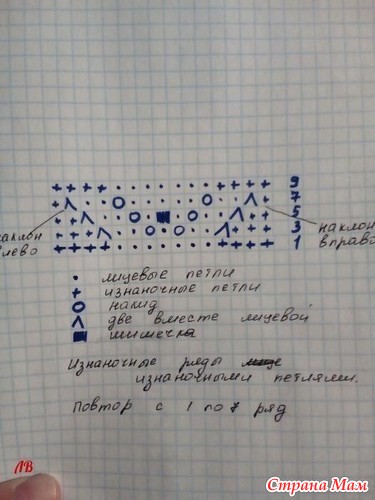 9
7
5
3
1
аклон
лево
наклон
вправо
• лицевые петли
+ изнаночные петли
О накид
Λ две вместе лицевой
■ шишечка
Изнаночные ряды
изнаночными петлями.
Повтор с 1 по 7 ряд
ЛВ
Страна Мам